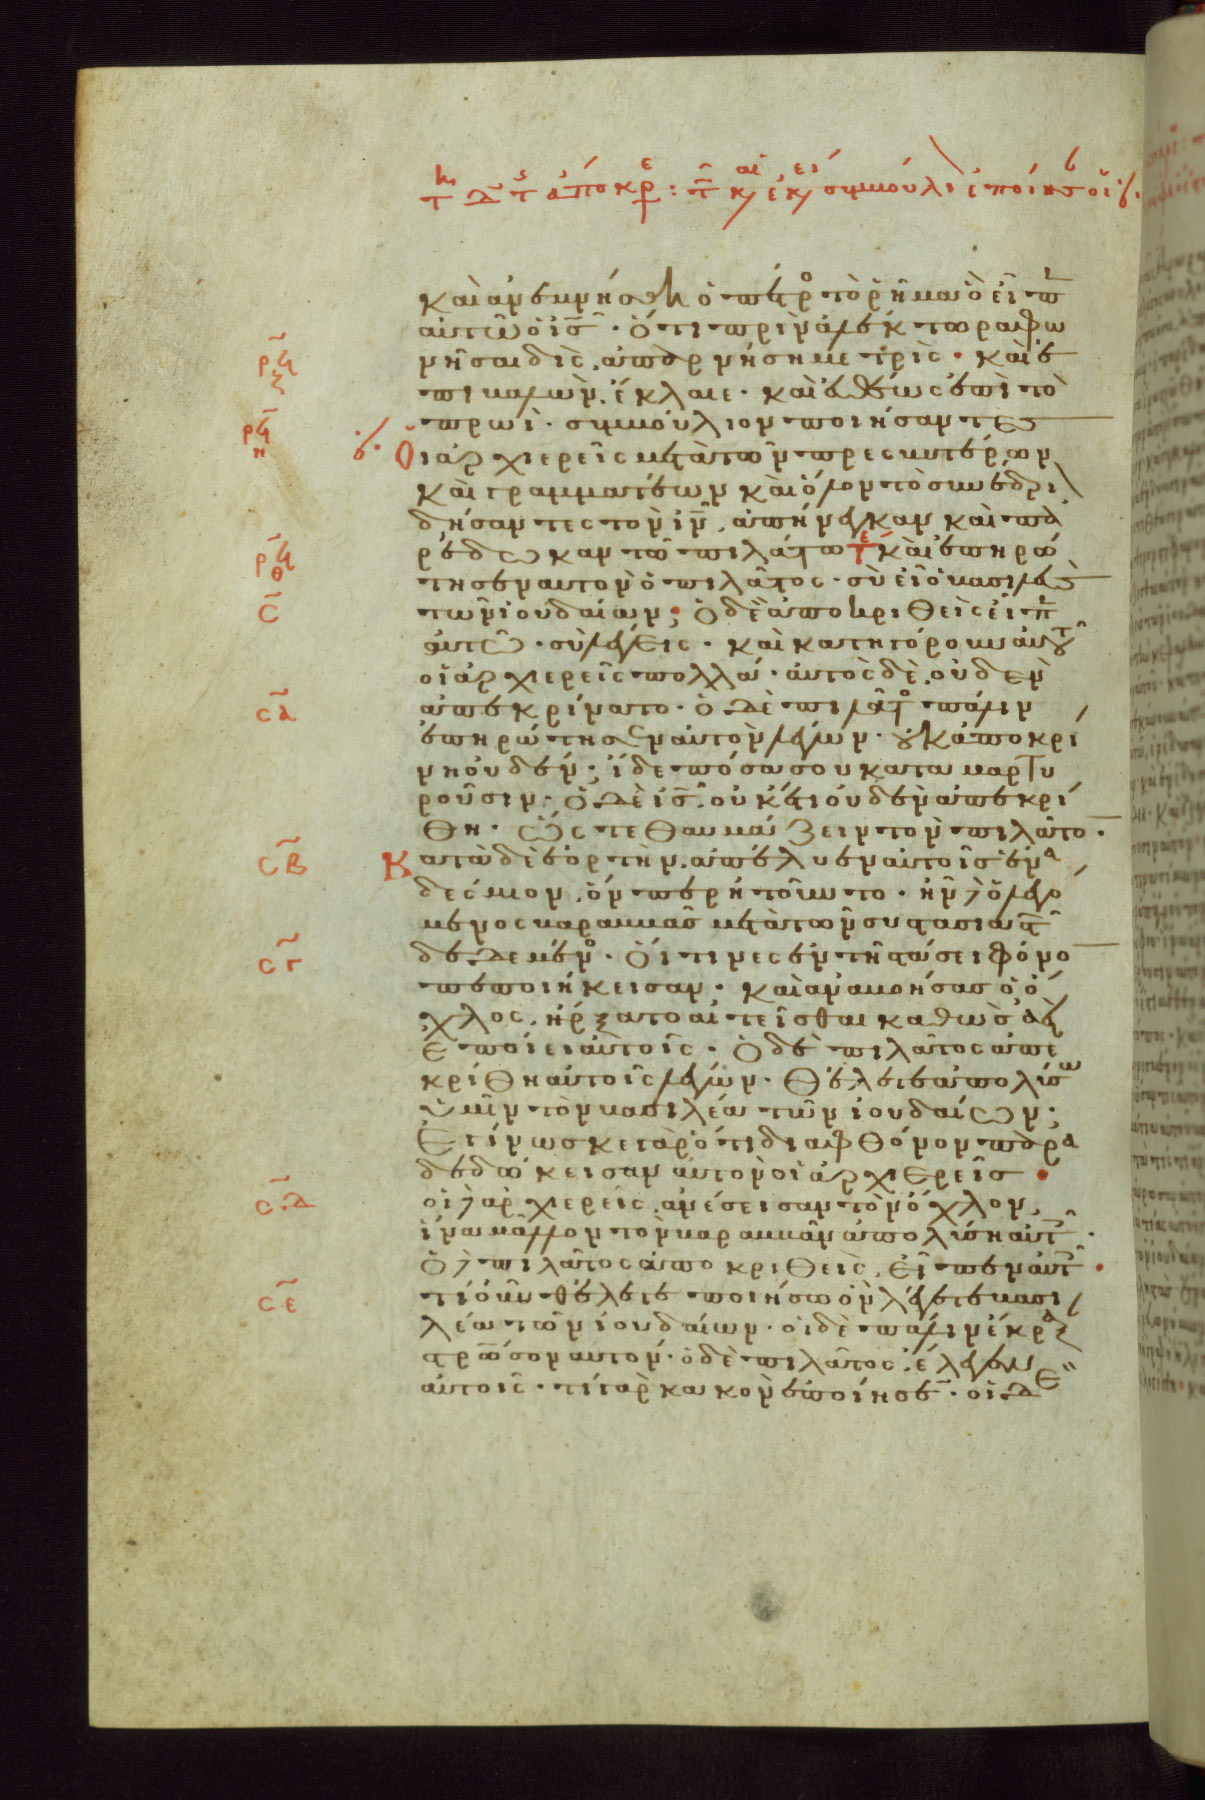 καὶ ἀνεμνήσθη ὁ πετρο τὸ ῥῆμα ὃ εἶπ
αὐτῶ ὁ ισ · ὅτι πρὶν ἀλεκτορα φω
νῆσαι δὶς, ἀπαρνήση με τρὶς · καὶ ἐ
πιβαλὼν, ἔκλαιε · καὶ εὐθέως ἐπὶ τὸ
πρωῒ · συμβούλιον ποιήσαντες
Οἱ ἀρχιερεῖς μετὰ τῶν πρεσβυτέρων
καὶ γραμματέων καὶ ὅλον τὸ συνέδρι
δήσαντες τὸν ιν, ἀπήνεγκαν καὶ πα
ρέδωκαν τῶ πιλάτω καὶ ἐπηρώ
τησεν αυτον ὁ πιλᾶτος · σὺ εἶ ὁ βασιλεὺς
τῶν ἰουδαίων; ὁ δὲ ἀποκριθεὶς εἶπ
αὐτῶ · σὺ λέγεις · καὶ κατηγόρουν αὐτοῦ
οἱ ἀρχιερεῖς πολλά · αὐτὸς δὲ, οὐδὲν
ἀπεκρίνατο · ὁ δὲ πιλᾶτο πάλιν
ἐπηρώτησεν αὐτὸν λέγων · οὐκ ἀποκρί
νη οὐδέν; ἴδε πόσα σου καταμαρτυ
ροῦσιν · ὁ δὲ ισ οὐκέτι οὐδὲν ἀπεκρί
θη · ὥς τε θαυμάζειν τὸν πιλᾶτο ·
Κατὰ δὲ ἑορτὴν, ἀπέλυεν αὐτοῖς ἕνα
δεσμιον, ὅνπερ ἠτοῦντο · ἦν δὲ ὁ λεγό
μενος βαραββᾶς μετὰ τῶν συστασιαστ
δεδεμένο · οἵτινες ἐν τῆ στάσει φόνο
πεποιήκεισαν · καὶ ἀναβοήσας ὁ ὄ
χλος, ἤρξατο αἰτεῖσθαι καθὼς ἀεὶ
ἐποίει αὐτοῖς · ὁ δὲ πιλᾶτος ἀπε
κρίθη αὐτοῖς λέγων · θέλετε ἀπολύσω
ὑμῖν τὸν βασιλέα τῶν ἰουδαίων;
ἐγίνωσκε γὰρ ὅτι διὰ φθόνον παρα
δεδώκεισαν αὐτὸν οἱ ἀρχιερεῖς ·
οἱ δὲ ἀρχιερεῖς, ἀνέσεισαν τὸν ὄχλον,
ἵνα μᾶλλον τὸν βαραββᾶν ἀπολύση αὐτ ·
ὁ δὲ πιλᾶτος ἀποκριθεὶς, εἶπεν αὐτ ·
τί οὖν θέλετε ποιήσω ὃν λέγετε βασι
λέα τῶν ἰουδαίων · οἱ δὲ πάλιν ἔκραξ
σταρωσον αυτον · ὁ δὲ πιλᾶτος, ἔλεγεν
αὐτοῖς · τί γὰρ κακὸν ἐποίησε · οἱ δὲ
ρϟζ
ρϟη
ρϟθ
ς
σα
σβ
σγ
σδ
σε